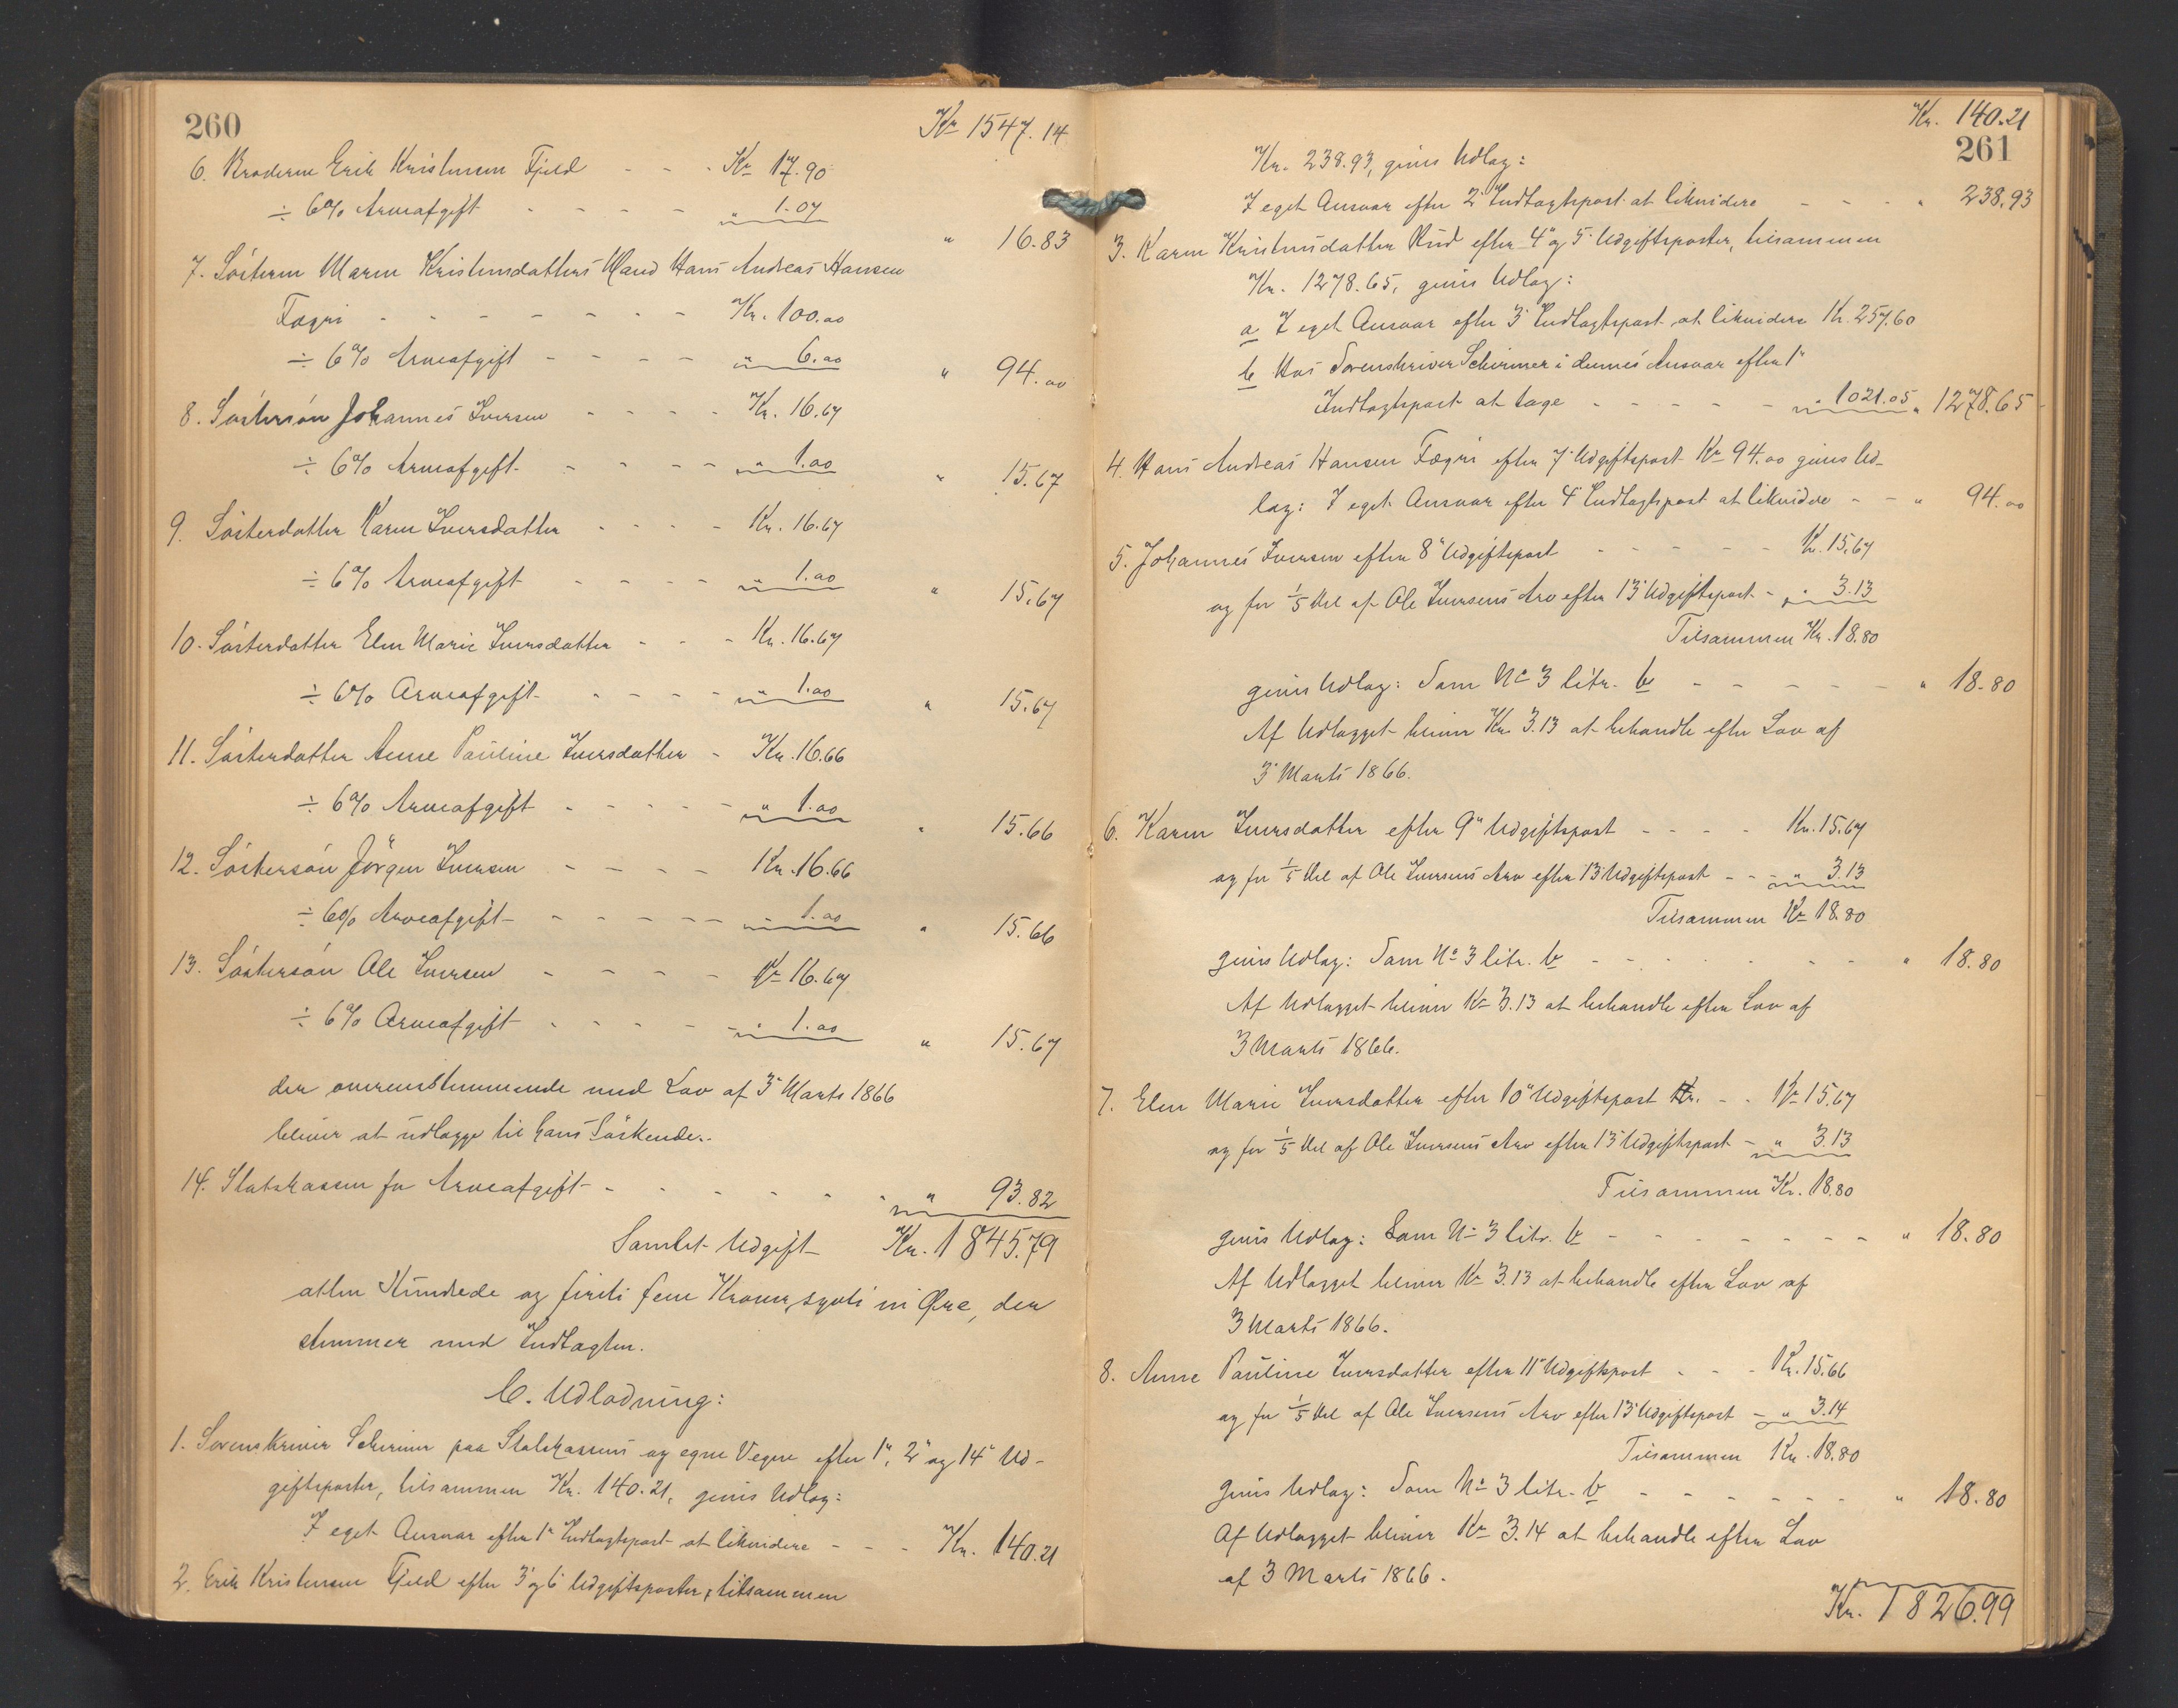 260
Kr 1547.14
6. Broderen Erik Kristensen Fjeld - - - Kr 17.90
÷ 6% Arveafgift - - - - - " 1.07
" 16.83
7. Søsteren Maren Kristensdatters Mand Hans Andreas Hansen
Fagri - - - - - - - Kr. 100.00
÷ 6% Arveafgift - - - - " 6.00
" 94.00
8. Søstersøn Johannes Iversen - - - - Kr. 16.67
÷ 6% Arveafgift - - - - - " 1.00
" 15.67
9. Søsterdatter Karen Iversdatter - - - - Kr. 16.67
÷ 6% Arveafgift - - - - " 1.00
" 15.67
10. Søsterdatter Elen Marie Iversdatter - - - Kr. 16.67
÷ 6% Arveafgift - - - - - " 1.00
" 15.67
11. Søsterdatter Anne Pauline Iversdatter - Kr. 16.66
÷ 6% Arveafgift - - - - - " 1.00
" 15.66
12. Søstersøn Jörgen Iversen - - - - Kr. 16.66
÷ 6% Arveafgift - - - - - " 1.00
" 15.66
13. Søstersøn Ole Iversen - - - - Kr 16.67
÷ 6% Arveafgift - - - - - " 1.00
" 15.67
der overensstemmende med Lov af 3' Marts 1866
bliver at udlægge til hans Søskende.
14. Statskassen for Arveafgift - - - - - - " 93.82
Samlet Udgift Kr. 1845.79
atten Hundrede og firti fem Kroner, sytti ni Øre, der
stemmer med Indtægten.
C. Udlodning:
1. Sorenskriver Schirmer paa Statskassens og egne Vegne efter 1", 2" og 14" Ud-
giftsposter, tilsammen Kr. 140.21, gives Udlæg:
I eget Ansvar efter 1" Indtægtspost at likvidere - - - Kr. 140.21
2. Erik Kristensen Fjeld efter 3' og 6' Udgiftsposter, tilsammen
Kr. 140.21
261
Kr. 238.93, gives Udlæg:
I eget Ansvar efter 2' Indtægtspost at likvidere - - - - " 238.93
3. Karen Kristensdatter Rud efter 4" og 5' Udgiftsposter, tilsammen
Kr. 1278.65, gives Udlæg:
a I eget Ansvar efter 3' Indtægtspost at likvidere Kr. 257.60
b Hos Sorenskriver Schirmer i dennes Ansvar efter 1"
Indtægtspost at tage - - - - - - " 1021.05 " 1278.65
4. Hans Andreas Hansen Fagri efter 7' Udgiftspost Kr 94.00 gives Ud-
læg: I eget Ansvar efter 4' Indtægtspost at likvidere - - " 94.00
5. Johannes Iversen efter 8" Udgiftspost - - - - - - Kr. 15.67
og for 1/5 Del af Ole Iversens Arv efter 13' Udgiftspost - " 3.13
Tilsammen Kr. 18.80
gives Udlæg: Som No 3 litr. b - - - - - - " 18.80
Af Udlægget bliver Kr. 3.13 at behandle efter Lov af
3' Marts 1866.
6. Karen Iversdatter efter 9" Udgiftspost - - - - Kr. 15.67
og for 1/5 Del af Ole Iversens Arv efter 13' Udgiftspost - - " 3.13
Tilsammen Kr 18.80
gives Udlæg: Som No 3 litr. b - - - - - - " 18.80
Af Udlægget bliver Kr 3.13 at behandle efter Lov af
3 Marts 1866.
7. Elen Marie Iversdatter efter 10" Udgiftspost Kr. - - Kr 15.67
og for 1/5 Del af Ole Iversens Arv efter 13' Udgiftspost - " 3.13
Tilsammen Kr. 18.80
gives Udlæg: Som No 3 litr. b - - - - - - - " 18.80
Af Udlægget bliver Kr 3.13 at behandle efter Lov af
3 Marts 1866.
8. Anne Pauline Iversdatter efter 11" Udgiftspost - - - Kr. 15.66
og for 1/5 Del af Ole Iversens Arv efter 13' Udgiftspost - " 3.14
Tilsammen Kr. 18.80
gives Udlæg: Som No 3 litr. b - - - - - - " 18.80
Af Udlægget bliver Kr 3.14 at behandle efter Lov
af 3 Marts 1866.
Kr. 1826.99